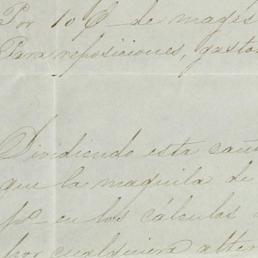 Por 10 % de
Para reposiciones, gasto
Dividiendo esta can
que la maquila de
pº en los cálculos
por cualquiera alter